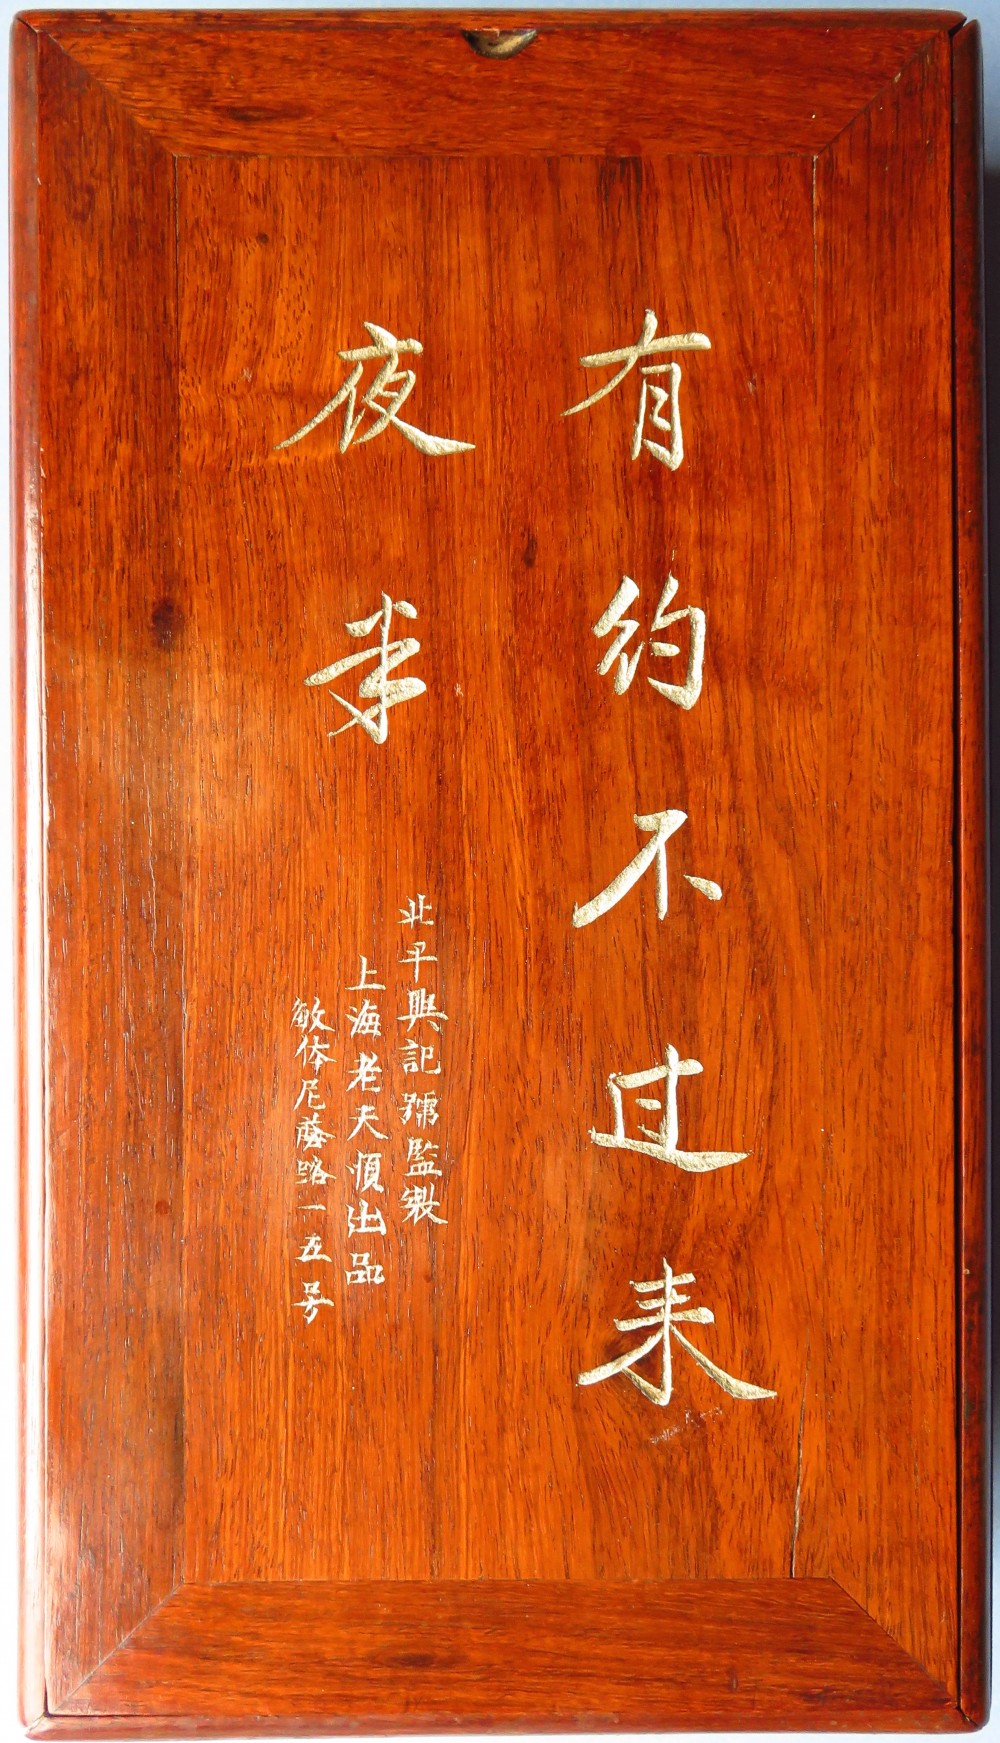 有约不过来
夜半
北平興記號監製
上海老天順出品
敏体尼蔭路一五号